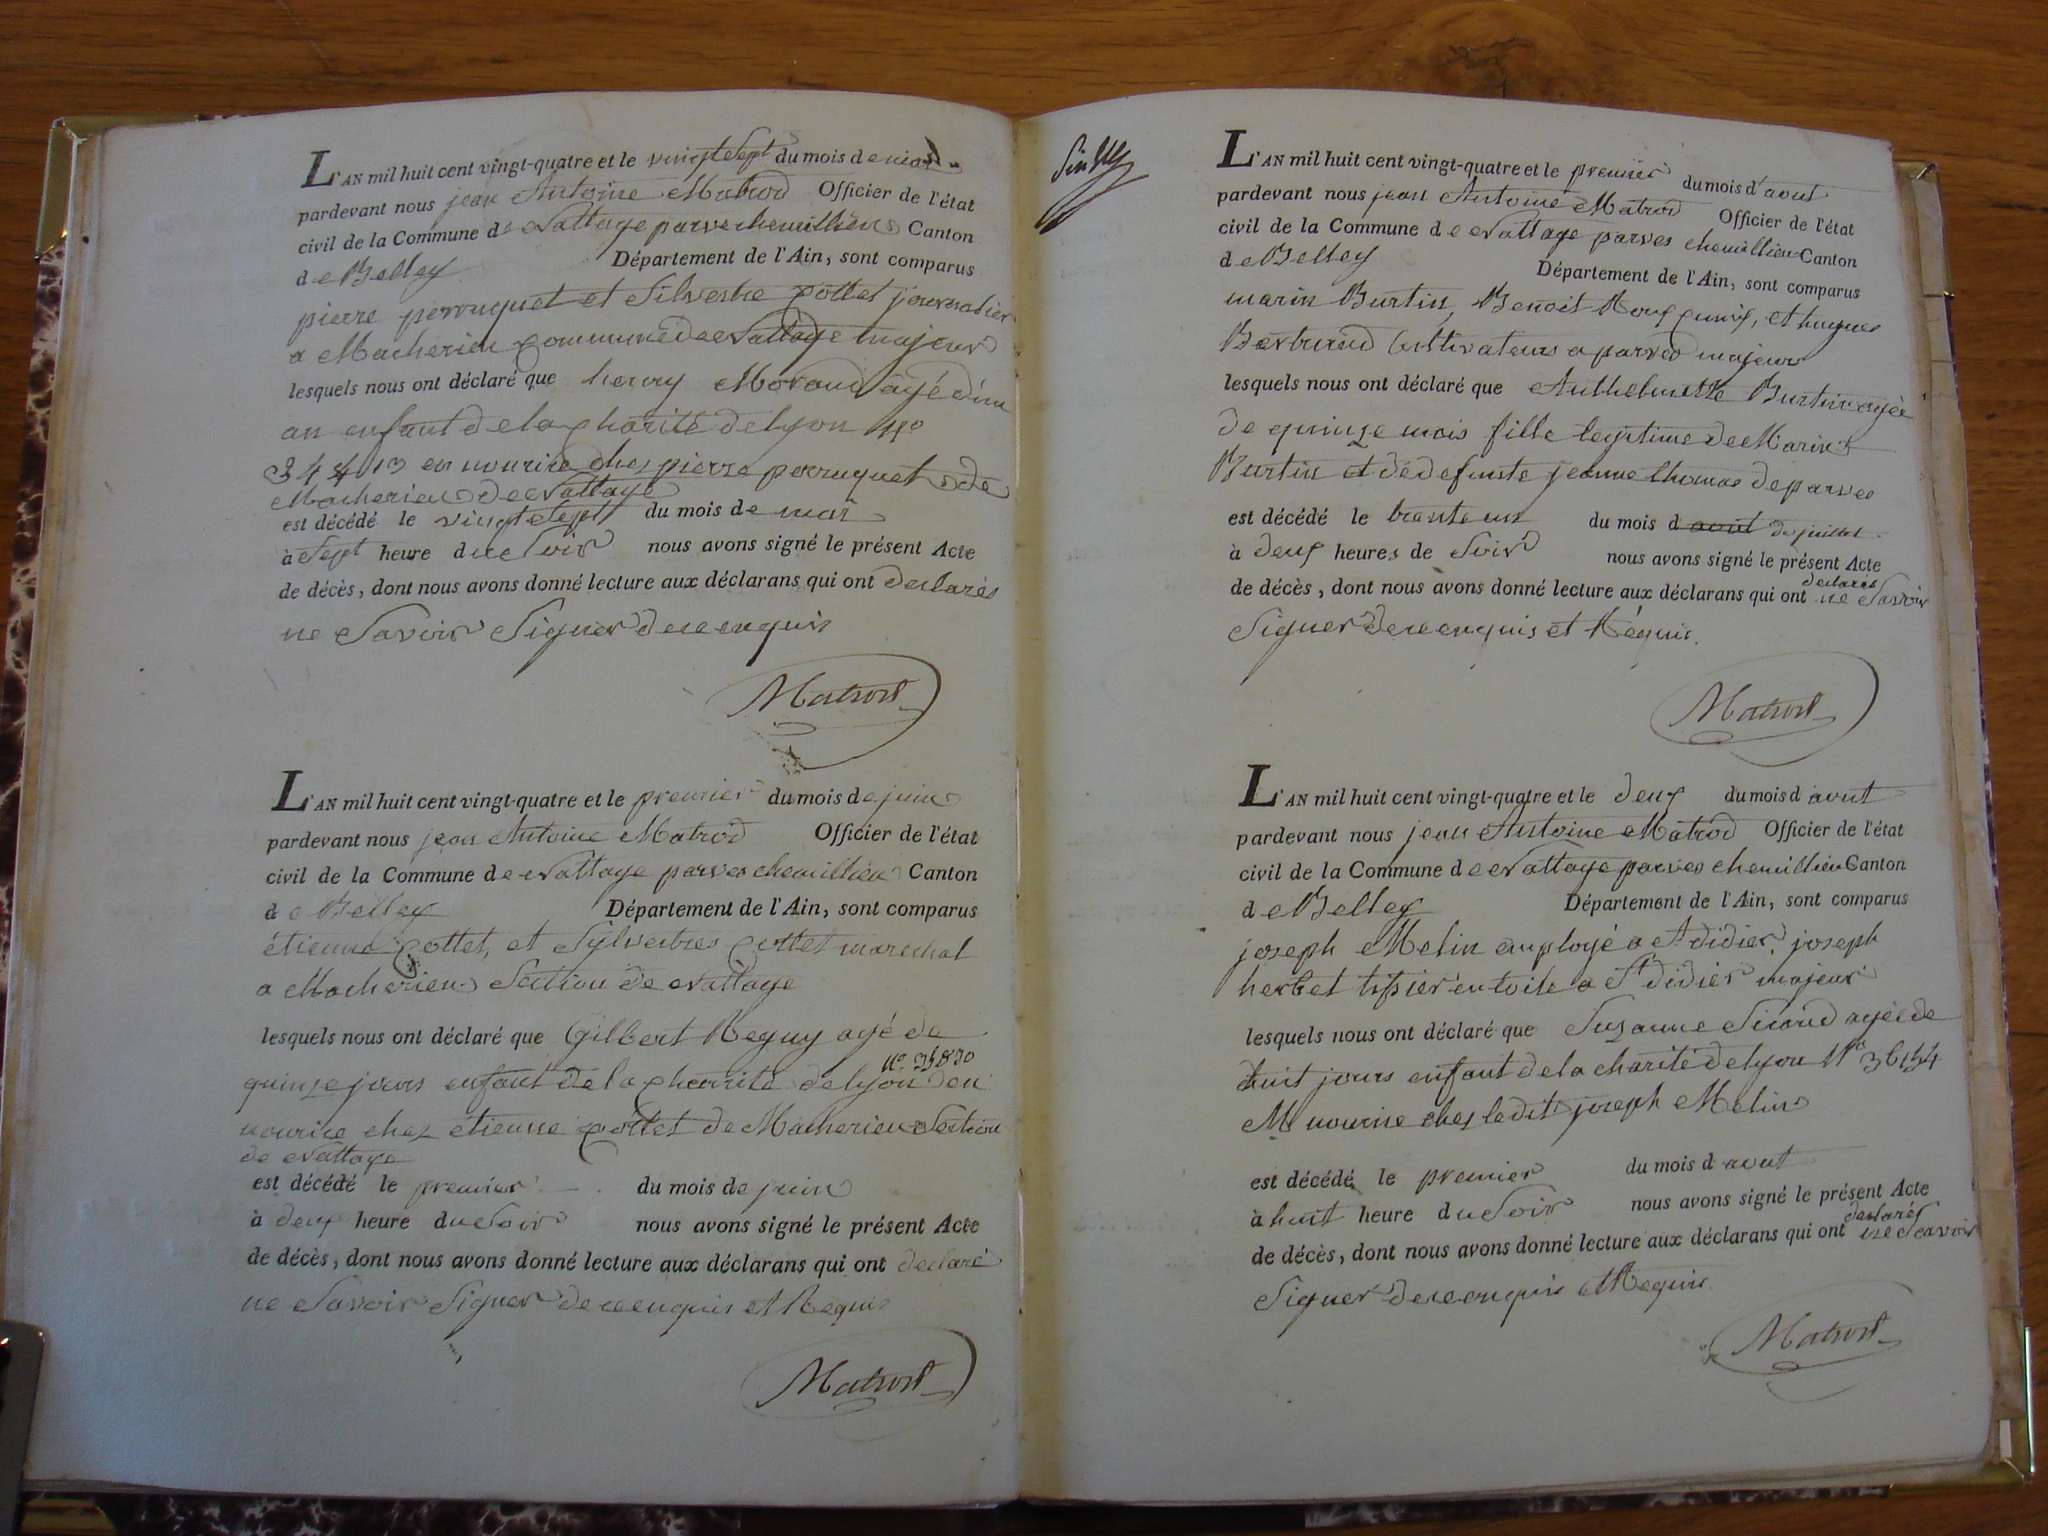 L'AN mil huit cent vingt-quatre et le vingt Sept du mois de mai
pardevant nous jean Antoine Matrod Officier de l'état
civil de la Commune de Nattage parve chemillieu Canton
de Belley Département de l'Ain, sont comparus
pierre perouquet et Silvestre pottet journalier
a Macherieu Commune de Nattage majeurs
lesquels nous ont déclaré que henry Morand agé d'un
an enfant de la charité de lyon no
en nourice ches pierre perruquet de
Macherieu de Nattage
est décédé le vingt Sept du mois de mai
à Sept heure du Soir nous avons signé le présent Acte
de décès, dont nous avons donné lecture aux déclarans qui ont declarés
ne Savoir Signer de ce enquis
Matrod
L'AN mil huit cent vingt-quatre et le premier du mois de juin
pardevant nous jean Antoine Matrod Officier de l'état
civil de la Commune de Nattage parves chemillieu Canton
de Belley Département de l'Ain, sont comparus
étienne pottet, et Sylvestres pottet marechal
a Macherieu Section de Nattage
lesquels nous ont déclaré que Gilbert Reguy agé de
quinze jours enfant de la charité de lyon n° en
nourice chez étienne pottet de Macherieu Section
de Nattage
est décédé le premier du mois de juin
à deux heure du Soir nous avons signé le présent Acte
de décès, dont nous avons donné lecture aux déclarans qui ont declaré
ne Savoir Signer de ce enquis et Requis
Matrod
L'AN mil huit cent vingt-quatre et le premier du mois d'avut
pardevant nous jean Antoine Matrod Officier de l'état
civil de la Commune de Nattage parves chemillieu Canton
de Belley Département de l'Ain, sont comparus
marin Burtin, Benoit et hugues
Bertrand Cultivateurs a parves majeurs
lesquels nous ont déclaré que Anthelmette Burtin agée
de quinze mois fille legitime de Marin
Burtin et de defunte jeanne thomas de parves
est décédé le trante un du mois d avut de juillet
à deux heures de Soir nous avons signé le présent Acte
de décès, dont nous avons donné lecture aux déclarans qui ont declarés ne Savoir
Signer de ce enquis et Requis.
Matrod
L'AN mil huit cent vingt-quatre et le deux du mois d avut
pardevant nous jean Antoine Matrod Officier de l'état
civil de la Commune de Nattage parves chemillieu Canton
de Belley Département de l'Ain, sont comparus
joseph Melin employé a St didier, joseph
herbet tissier en toile a St didier majeur
lesquels nous ont déclaré que Suzanne Sicand agée de
huit jours enfant de la charité de lyon N° 36154
en nourice ches ledit joseph Melin
est décédé le premier du mois d avut
à huit heure du Soir nous avons signé le présent Acte
de décès, dont nous avons donné lecture aux déclarans qui ont declarés ne Savoir
Signer de ce enquis et Requis.
Matrod